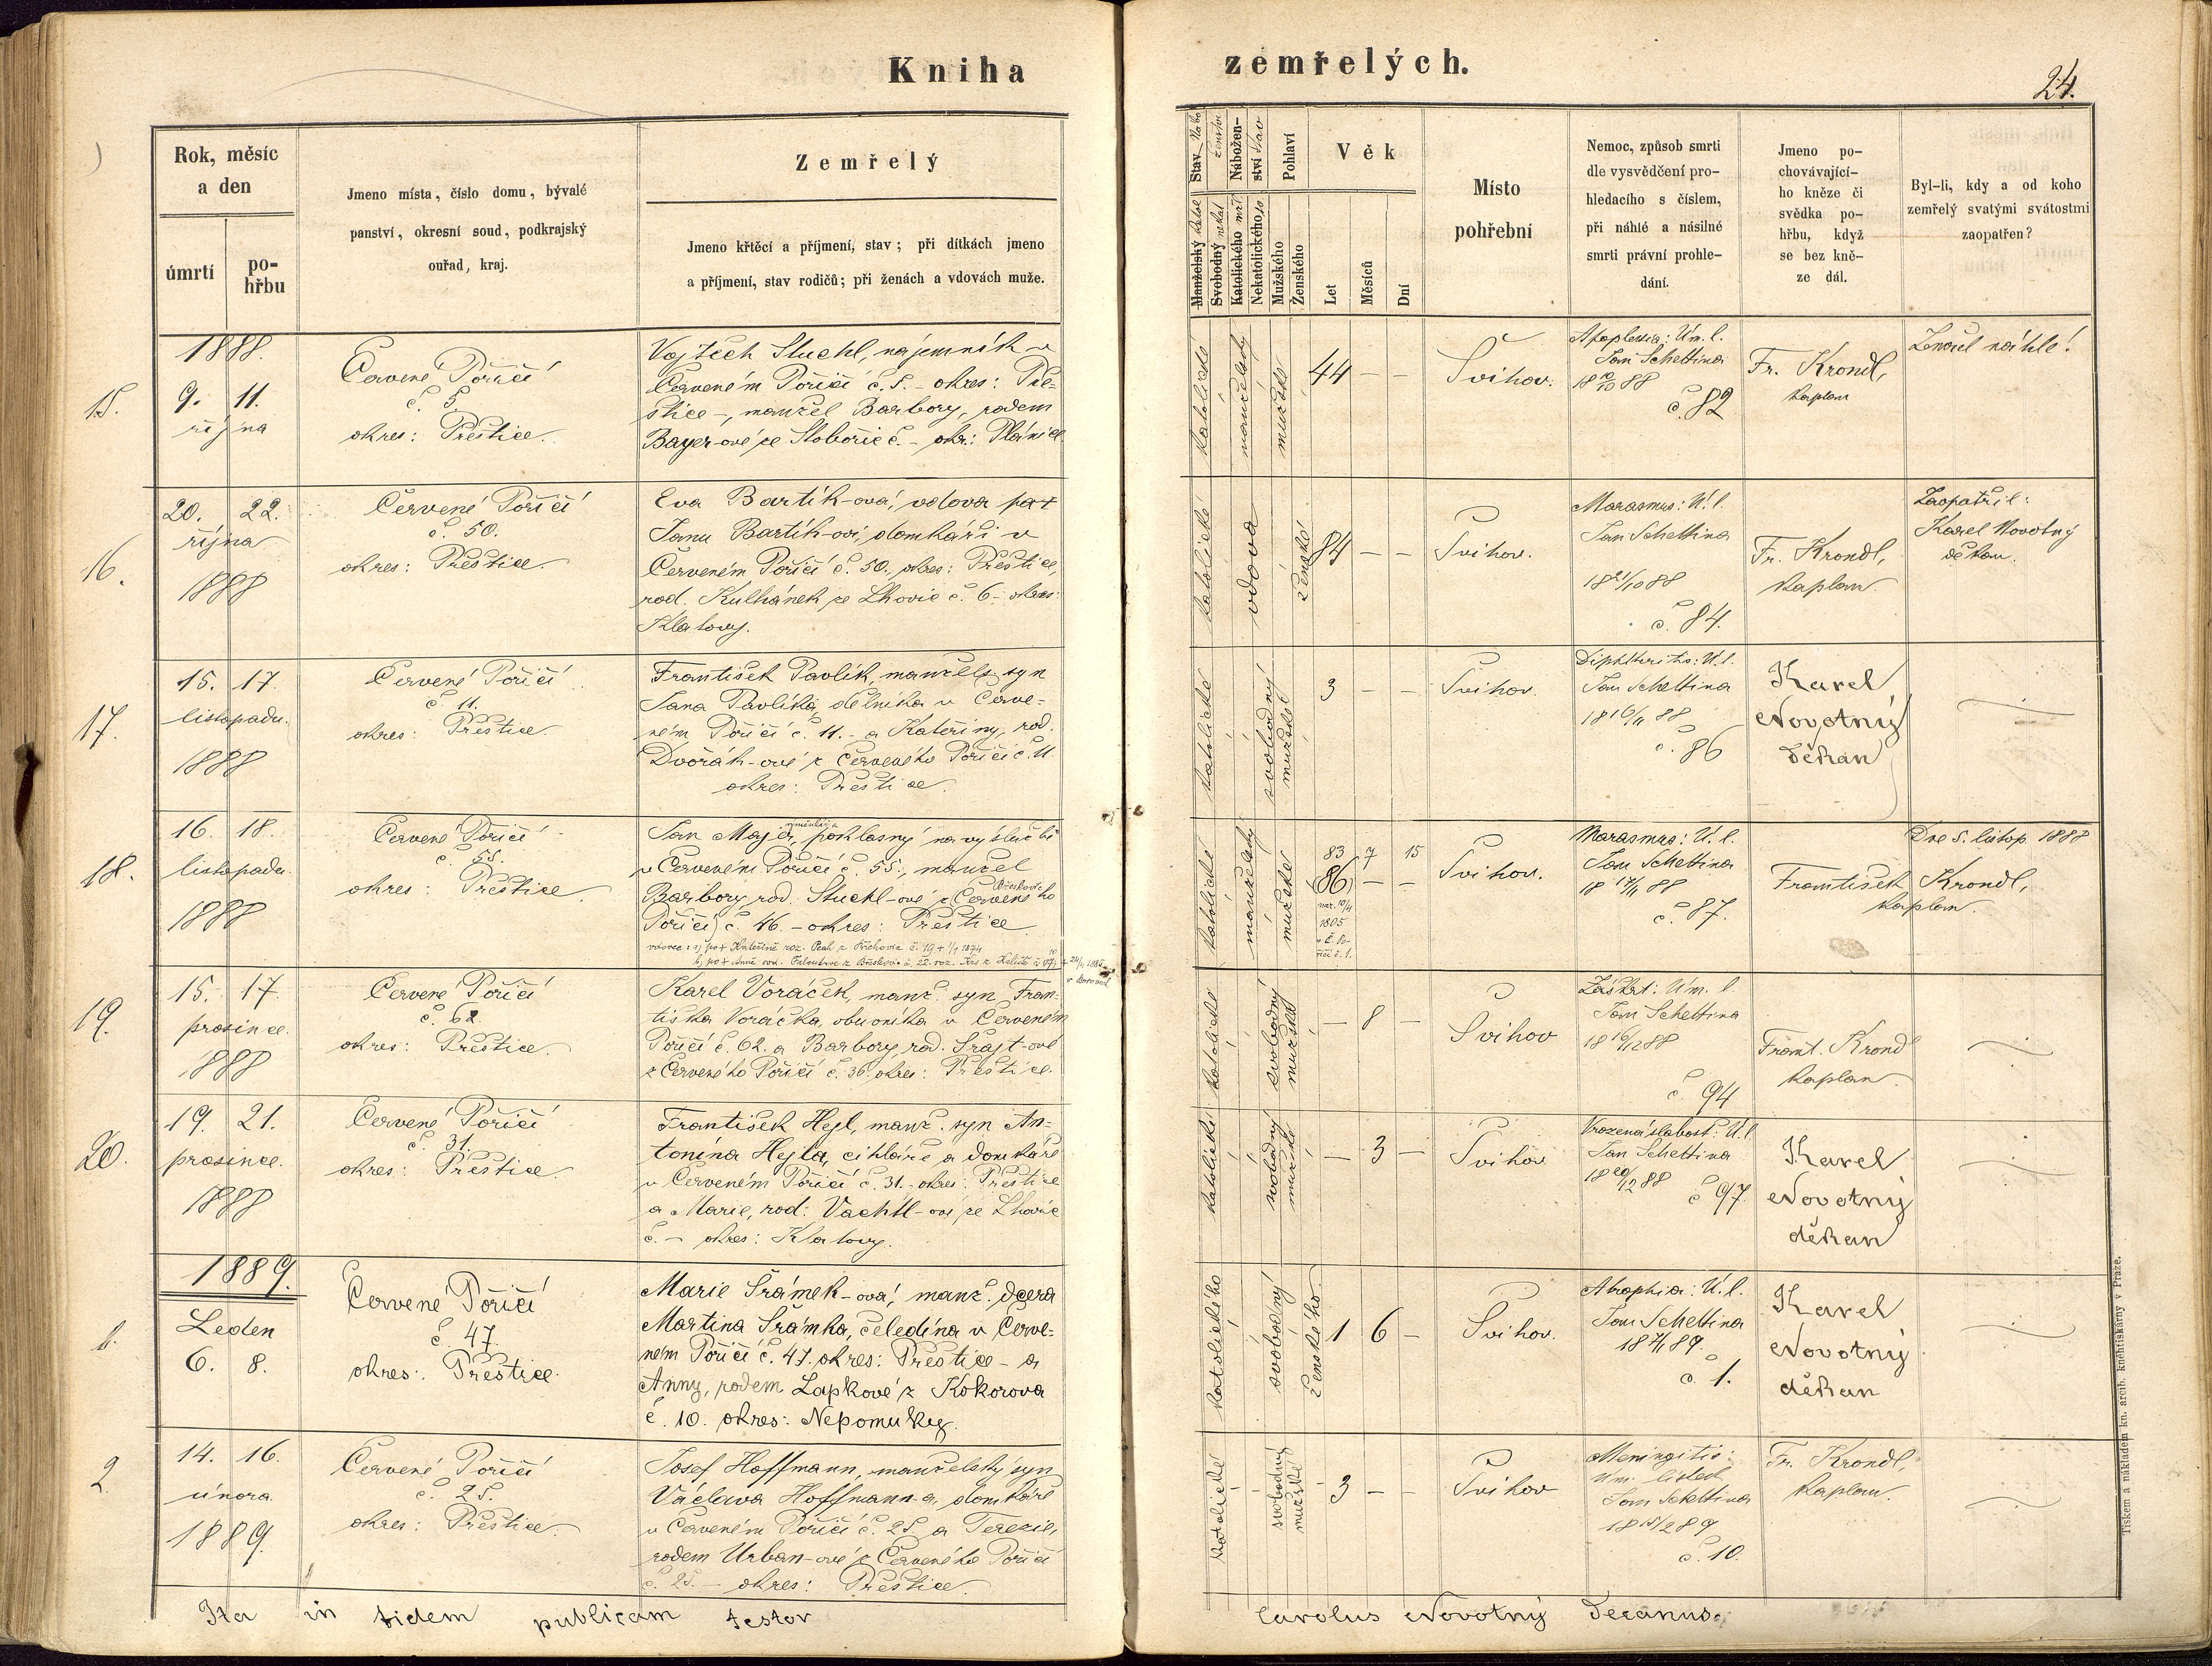 Kniha zemřelých.
24.
Rok, měsíc
a den
úmrtí
po-
hřbu
Jmeno místa, číslo domu, bývalé
panství, okresní soud, podkrajský
ouřad, kraj.
Zemřelý
Jmeno křtěcí a příjmení, stav; při dítkách jmeno
a příjmení, stav rodičů; při ženách a vdovách muže.
Stav
Nábožen-
ství
Pohlaví
Manželský
Svobodný
Katolického
Nekatolického
Mužského
Ženského
Věk
Let
Měsíců
Dní
Místo
pohřební
Nemoc, způsob smrti
dle vysvědčení pro-
hledacího s číslem,
při náhlé a násilné
smrti právní prohle-
dání.
Jmeno po-
chovávající-
ho kněze či
svědka po-
hřbu, když
se bez kně-
ze dál.
Byl-li, kdy a od koho
zemřelý svatými svátostmi
zaopatřen?
15.
1888.
9. 11.
října
Červené Poříčí
č. 5.
okres: Přeštice.
Vojtěch Stuchl, nájemník v
Červeném Poříčí č. 5. - okres: Pře-
štice -, manžel Barbory, rodem
Bayer-ové ze Slobořic č. - okr: Plánice
katolické
manželský
mužské
44 - -
Švihov.
Apoplexia: Úm. l.
Jan Schettina
18 10/10 88
č. 82
Fr. Krondl,
kaplan
Zemřel náhle!
16.
20. 22.
října
1888
Červené Poříčí
č. 50.
okres: Přeštice.
Eva Bartík-ová, vdova po +
Janu Bartík-ovi, domkáři v
Červeném Poříčí č. 50., okres: Přeštice,
rod. Kulhánek ze Lhovic č. 6 - okres:
Klatovy.
katolické
vdova
ženské
84 - -
Švihov.
Marasmus: Ú. l.
Jan Schettina
18 21/10 88
č. 84.
Fr. Krondl,
kaplan.
Zaopatřil:
Karel Novotný
děkan.
17.
15. 17.
listopadu.
1888
Červené Poříčí
č. 11.
okres: Přeštice
František Pavlík, manžels. syn
Jana Pavlíka, dělníka v Červe-
ném Poříčí č. 11. - a Kateřiny, rod.
Dvořák-ové z Červeného Poříčí č. 11.
okres: Přeštice.
katolické
svobodný
mužské
3 - -
Švihov.
Diphtheritis: Ú. l.
Jan Schettina
18 16/11 88
č. 86
Karel
Novotný
děkan
18.
16. 18.
listopadu
1888
Červené Poříčí
č. 55.
okres: Přeštice.
výměnkář
v Červeném Poříčí č. 55., manžel
Barbory, rod. Stuchl-ové z Červeného
Poříčí č. 46. - okres: Přeštice
katolické
manželský
mužské
83 7 15
(86) - -
nar. 10/4
1805
v Č. Po-
říčí č. 1.
Švihov.
Marasmus: Ú. l.
Jan Schettina
18 17/11 88
č. 87.
František Krondl,
kaplan.
Dne 5. listop. 1888
19.
15. 17
prosince.
1888
Červené Poříčí
č. 62
okres: Přeštice.
Karel Voráček, manž. syn Fran-
tiška Voráčka, obuvníka v Červeném
Poříčí č. 62. a Barbory, rod. Srajt-ové
z Červeného Poříčí č. 36. okres: Přeštice.
katolické
svobodný
mužské
- 8 -
Švihov
Záškrt: Úm. l.
Jan Schettina
18 16/12 88
č. 94
Frant. Krondl
kaplan.
20.
19. 21.
prosince.
1888
Červené Poříčí
č. 31.
okres: Přeštice.
František Hejl, manž. syn An-
tonína Hejla, cihláře a domkáře
v Červeném Poříčí č. 31. - okres: Přeštice
a Marie, rod: Vachtl-ové ze Lhovic
č. - okres: Klatovy.
katolické
svobodný
mužské
- 3 -
Švihov
Vrozená slabost: Ú. l.
Jan Schettina
18 20/12 88
č 97
Karel
Novotný
děkan
1.
1889.
Leden
6. 8.
Červené Poříčí
č. 47.
okres: Přeštice.
Marie Šrámek-ová, manž. dcera
Martina Šrámka, čeledína v Červe-
ném Poříčí č. 47. okres: Přeštice - a
Anny, rodem Lapkové z Kokorova
č. 10. okres: Nepomuky.
katolického
svobodný
ženského
1 6 -
Švihov.
Atrophia: Ú. l.
Jan Schettina
18 7/1 89.
č. 1.
Karel
Novotný
děkan
2
14. 16.
února
1889.
Červené Poříčí
č. 25.
okres: Přeštice.
Josef Hoffmann, manželský syn
Václava Hoffmann-a, domkáře
v Červeném Poříčí č. 25. a Terezie,
rodem Urban-ové z Červeného Poříčí
č. 25. - okres: Přeštice.
katolické
svobodný
mužské
3 - -
Švihov
Meningitis:
Úm. listek
Jan Schettina
18 15/2 89
č. 10.
Fr. Krondl,
kaplan.
Ita in fidem publicam testor
Carolus Novotný Decanus.
Tiskem a nákladem kn. arcib. kněhtiskárny v Praze.